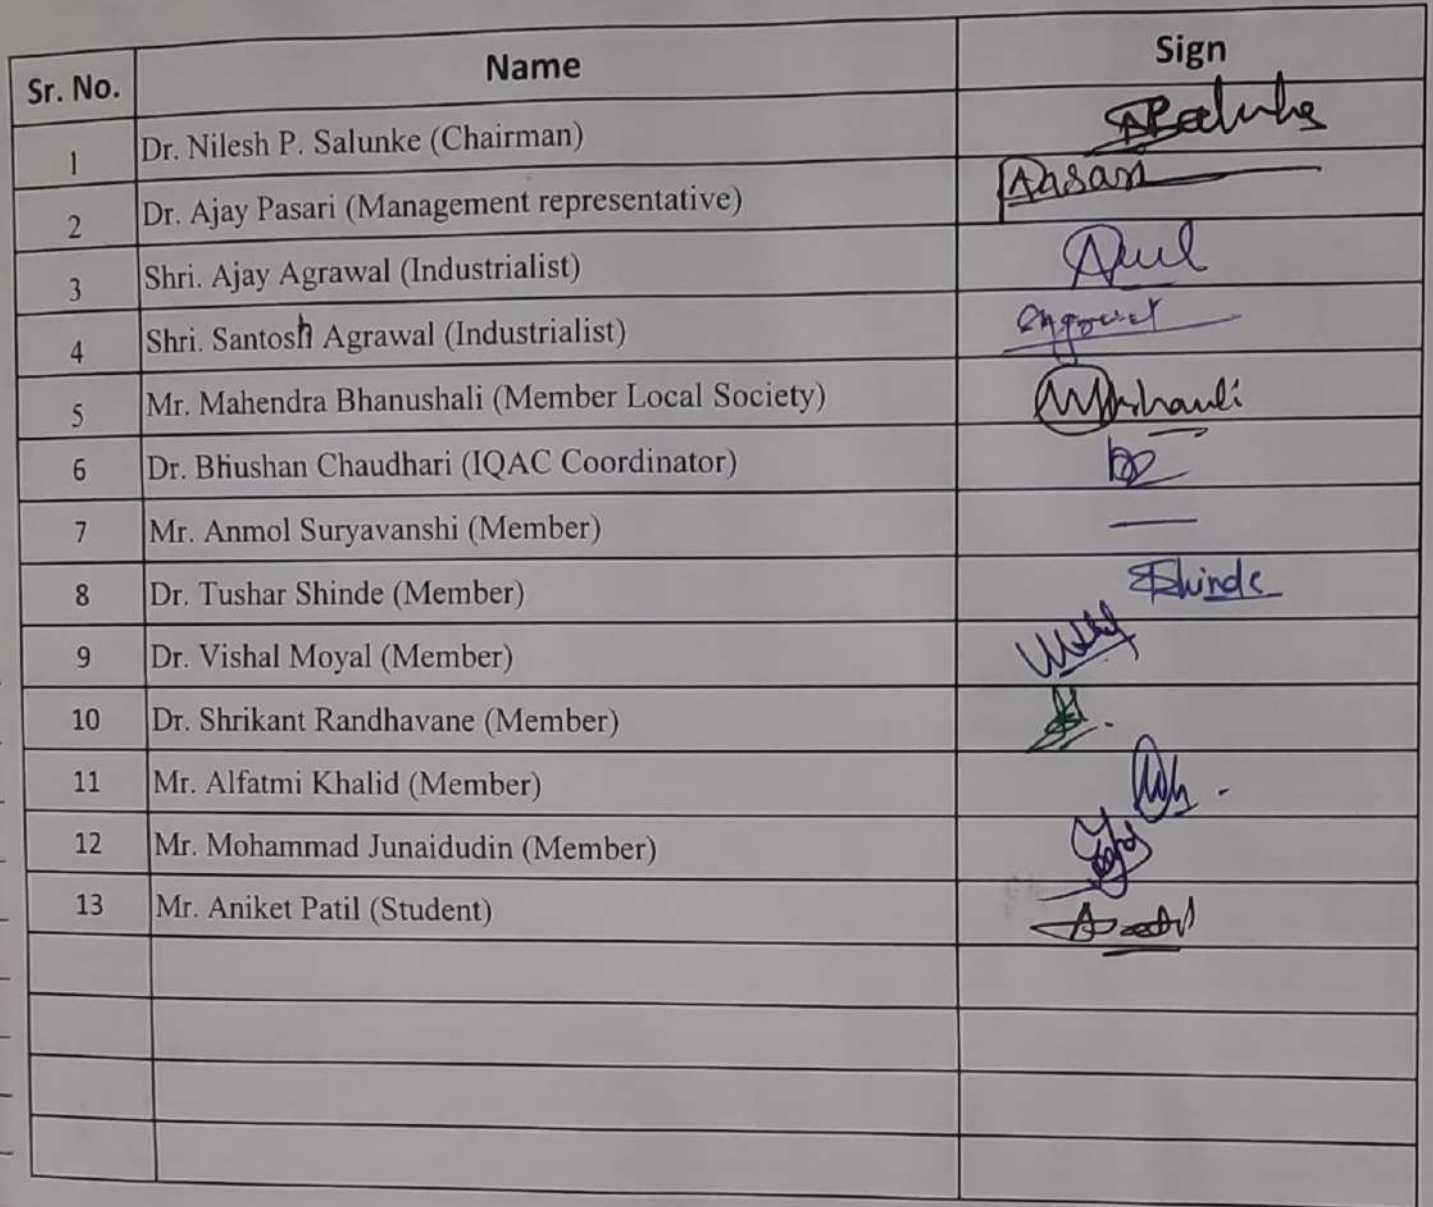 Sr. No. Name Sign
1 Dr. Nilesh P. Salunke (Chairman)
2 Dr. Ajay Pasari (Management representative) Pasari
3 Shri. Ajay Agrawal (Industrialist)
4 Shri. Santosh Agrawal (Industrialist)
5 Mr. Mahendra Bhanushali (Member Local Society)
6 Dr. Bhushan Chaudhari (IQAC Coordinator)
7 Mr. Anmol Suryavanshi (Member) —
8 Dr. Tushar Shinde (Member) Shinde
9 Dr. Vishal Moyal (Member)
10 Dr. Shrikant Randhavane (Member)
11 Mr. Alfatmi Khalid (Member)
12 Mr. Mohammad Junaidudin (Member)
13 Mr. Aniket Patil (Student)